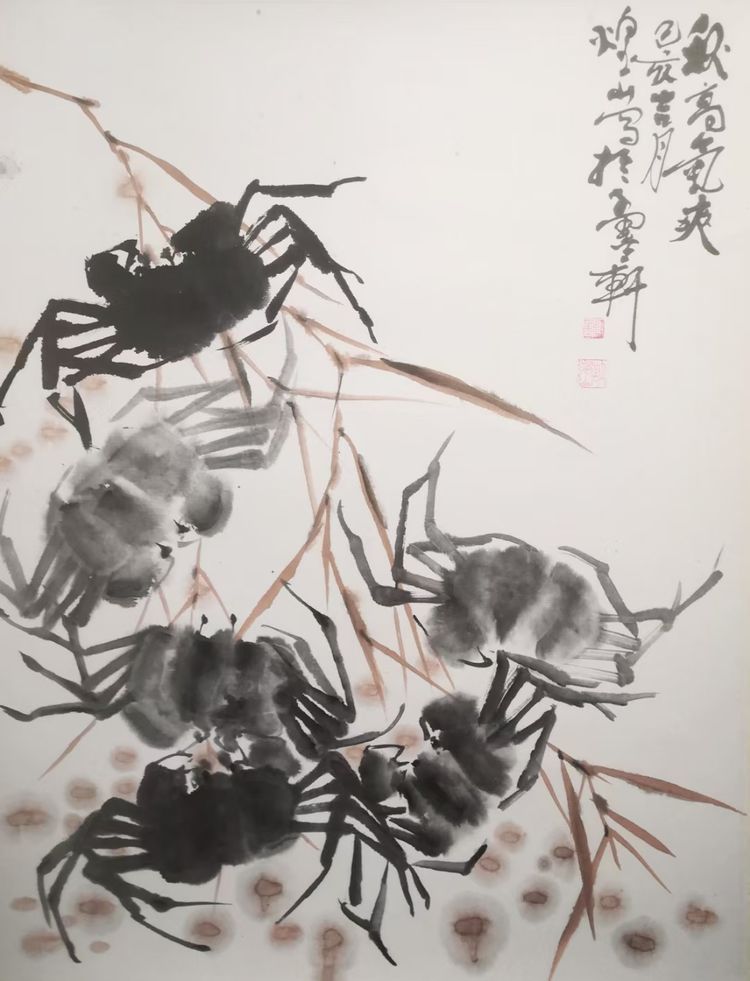 秋高氣爽
己亥吉月
煌山寫於墨軒